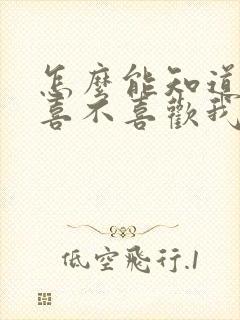 怎麼能知道
喜不喜歡我
低空飛行.1